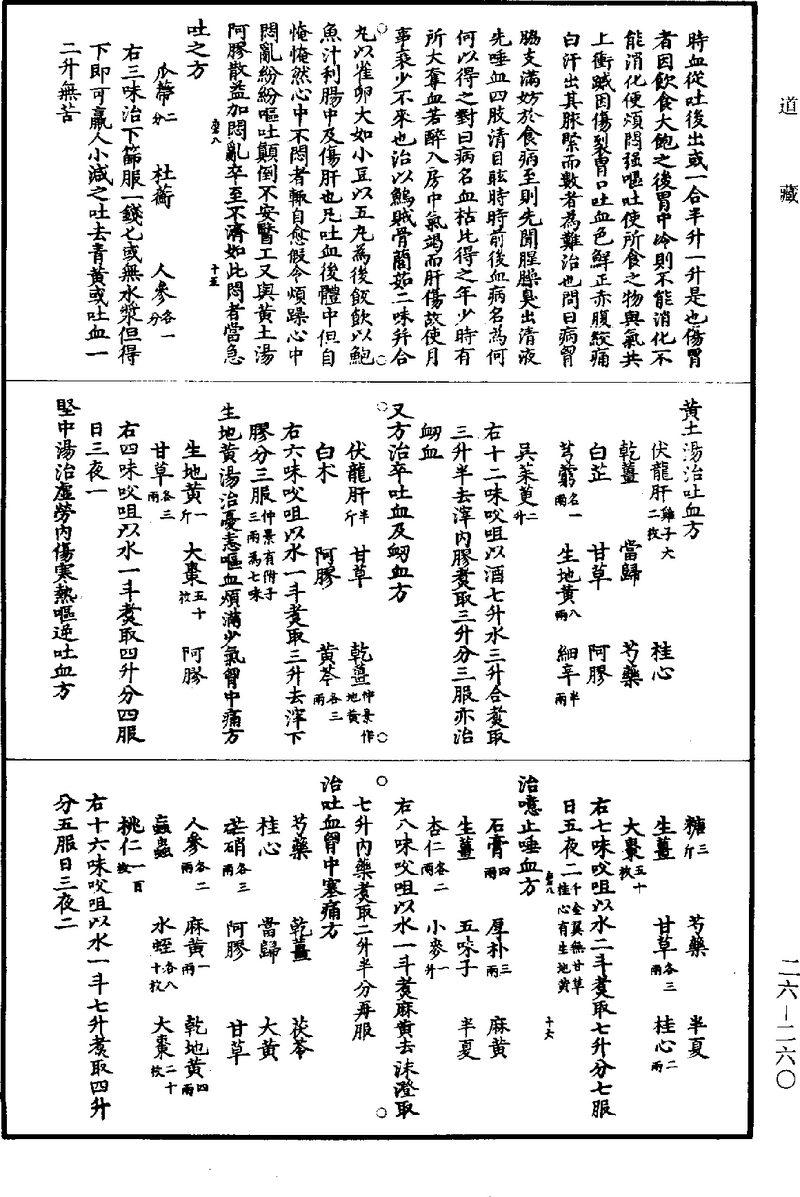 道藏
時血從吐後出或一合半升一升是也傷胃
者因飲食大飽之後胃中冷則不能消化不
能消化便煩悶强嘔吐使所食之物與氣共
上衝蹙因傷裂胃口吐血色鮮正赤腹絞痛
白汗出其脉緊而數者為難治也問曰病胷
脇支滿妨於食病至則先聞腥臊臭出清液
先唾血四肢清目眩時時前後血病名為何
何以得之對曰病名血枯此得之年少時有
所大奪血若醉入房中氣竭而肝傷故使月
事衰少不來也治以鰞賊骨䕡茹二味并合
丸以雀卵大如小豆以五丸為後飯飲以鮑
魚汁利腸中及傷肝也凡吐血後體中但自
悗悗然心中不悶者輒自愈假令煩躁心中
悶亂紛紛嘔吐顛倒不安醫工又與黃土湯
阿膠散益加悶亂卒至不濟如此悶者當急
虛八 十五
吐之方
瓜蔕二分 杜蘅 人參各一分
右三味治下篩服一錢匕或無水漿但得
下即可羸人小減之吐去青黃或吐血一
二升無苦
黃土湯治吐血方
伏龍肝雞子大二枚 桂心
乾薑 當歸 芍藥
白芷 甘草 阿膠
芎藭各一兩 生地黃八兩 細辛半兩
吳茱萸二升
右十二味㕮咀以酒七升水三升合煑取
三升半去滓內膠煑取三升分三服亦治
衂血
又方治卒吐血及衂血方
伏龍肝半斤 甘草 乾薑仲景作地黃
白术 阿膠 黃芩各三兩
右六味㕮咀以水一斗煑取三升去滓下
膠分三服仲景有附子三兩為七味
生地黃湯治憂恚嘔血煩滿少氣胷中痛方
生地黃一斤 大棗五十枚 阿膠
甘草各三兩
右四味㕮咀以水一斗煑取四升分四服
日三夜一
堅中湯治虛勞內傷寒熱嘔逆吐血方
糖三斤 芍藥 半夏
生薑 甘草各三兩 桂心二兩
大棗五十枚
右七味㕮咀以水二斗煑取七升分七服
日五夜二千金翼無甘草桂心有生地黃
虛八 十六
治噫止唾血方
石膏四兩 厚朴三兩 麻黃
生薑 五味子 半夏
杏仁各二兩 小麥一升
右八味㕮咀以水一斗煑麻黃去沫澄取
七升內藥煑取二升半分再服
治吐血胷中塞痛方
芍藥 乾薑 茯苓
桂心 當歸 大黃
芒硝各三兩 阿膠 甘草
人參各二兩 麻黃一兩 乾地黃四兩
䖟蟲 水蛭各八十枚 大棗二十枚
桃仁一百枚
右十六味㕮咀以水一斗七升煑取四升
分五服日三夜二
二六－二六〇